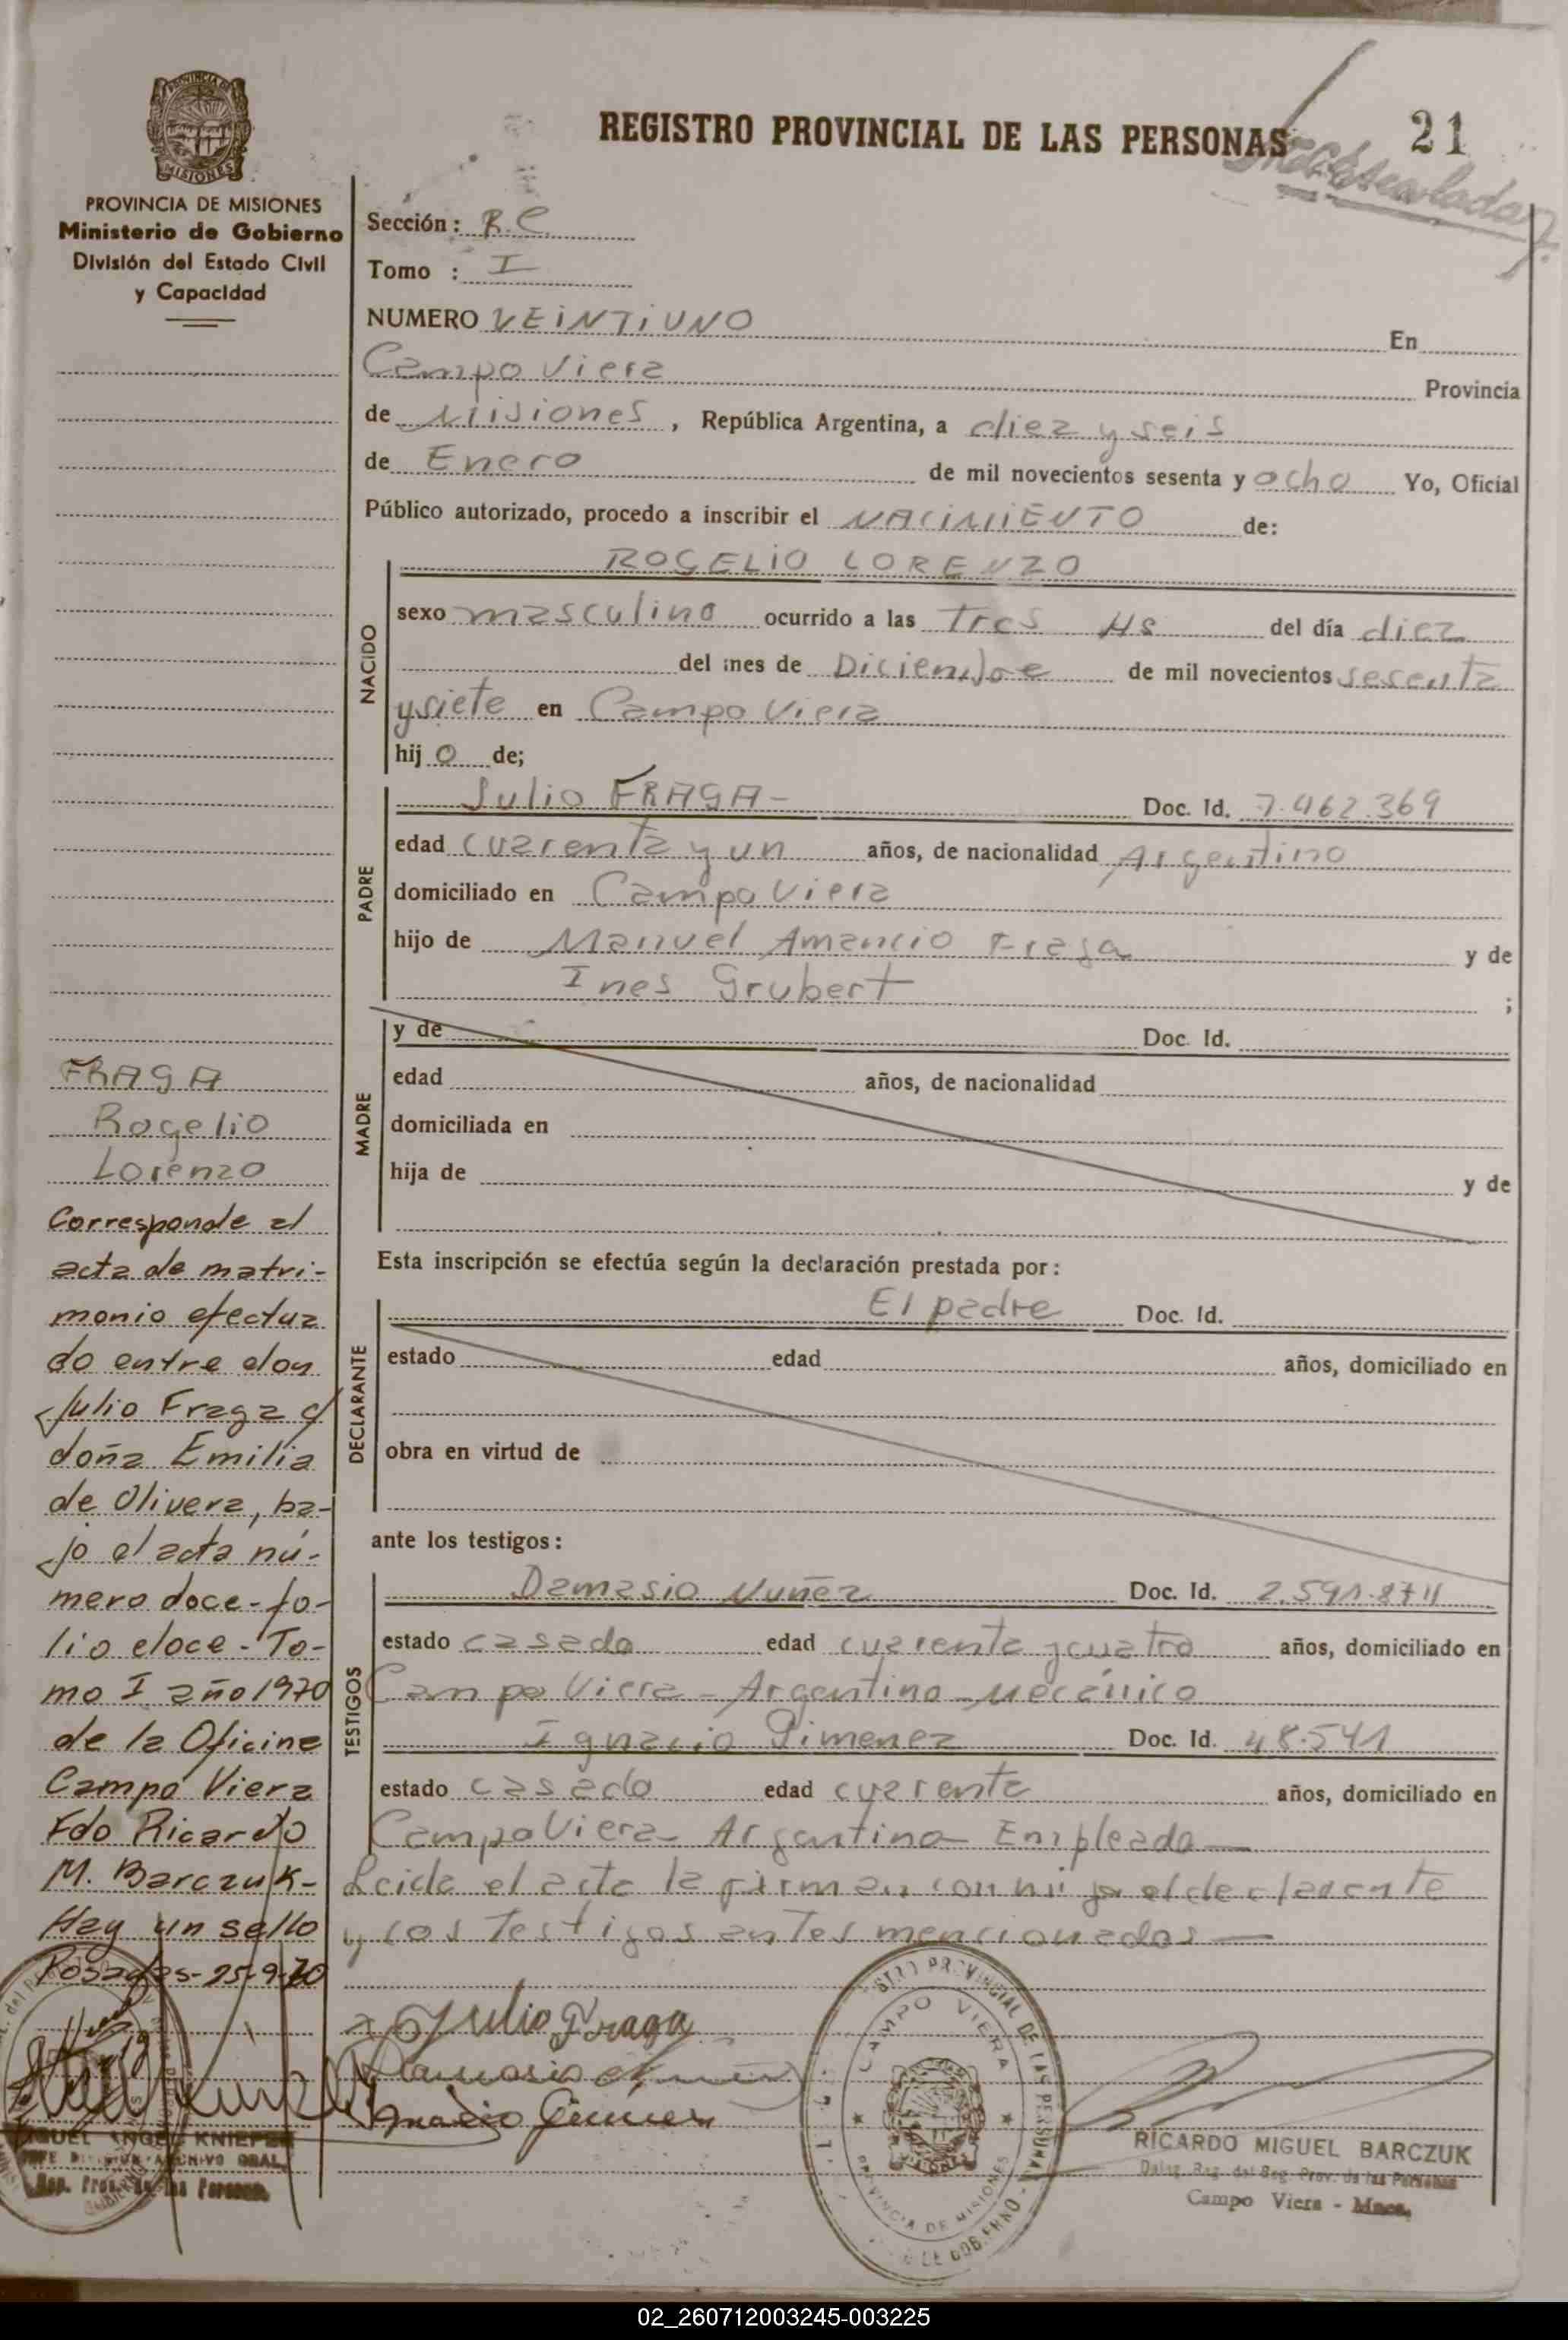 REGISTRO PROVINCIAL DE LAS PERSONAS
21
PROVINCIA DE MISIONES
MISIONES
PROVINCIA DE MISIONES
Ministerio de Gobierno
División del Estado Civil
y Capacidad
Sección: R.C.
Tomo : I
NUMERO VEINTIUNO En
Campo Viera Provincia
de Misiones, República Argentina, a diez y seis
de Enero de mil novecientos sesenta y ocho Yo, Oficial
Público autorizado, procedo a inscribir el NACIMIENTO de:
NACIDO
ROGELIO LORENZO
sexo masculino ocurrido a las Tres Hs del día diez
del mes de Diciembre de mil novecientos sesenta
y siete en Campo Viera
hijo de;
PADRE
Julio FRAGA- Doc. Id. 7.462.369
edad cuarenta y un años, de nacionalidad Argentino
domiciliado en Campo Viera
hijo de Manuel Amancio Fraga y de
Ines Grubert ;
MADRE
y de Doc. Id.
edad años, de nacionalidad
domiciliada en
hija de y de
Esta inscripción se efectúa según la declaración prestada por:
DECLARANTE
El padre Doc. Id.
estado edad años, domiciliado en
obra en virtud de
ante los testigos:
TESTIGOS
Damasio Nuñez Doc. Id.
estado casado edad cuarenta y cuatro años, domiciliado en
Campo Viera - Argentino Mecánico
Ignacio Gimenez Doc. Id. 48.541
estado casado edad cuarenta años, domiciliado en
Campo Viera - Argentino Empleado
Leida el acta la firman con mi go el declarante
y los Testigos antes mencionados
Julio Fraga
Damasio Nuñez
Ignacio Gimenez
CAMPO VIERA
PROVINCIA DE MISIONES
RICARDO MIGUEL BARCZUK
Deleg. Reg. del Reg. Prov. de las Personas
Campo Viera - Mnes.
FRAGA
Rogelio
Lorenzo
Corresponde al
acta de matri-
monio efectua
do entre don
Julio Fraga y
doña Emilia
de Olivera, ba-
jo el acta nú-
mero doce-fo-
lio doce - To-
mo I año 1970
de la Oficina
Campo Viera
Fdo Ricardo
M. Barczuk-
Hay un sello
Posadas-25-9-70
ANGEL KNIEPER
02_260712003245-003225